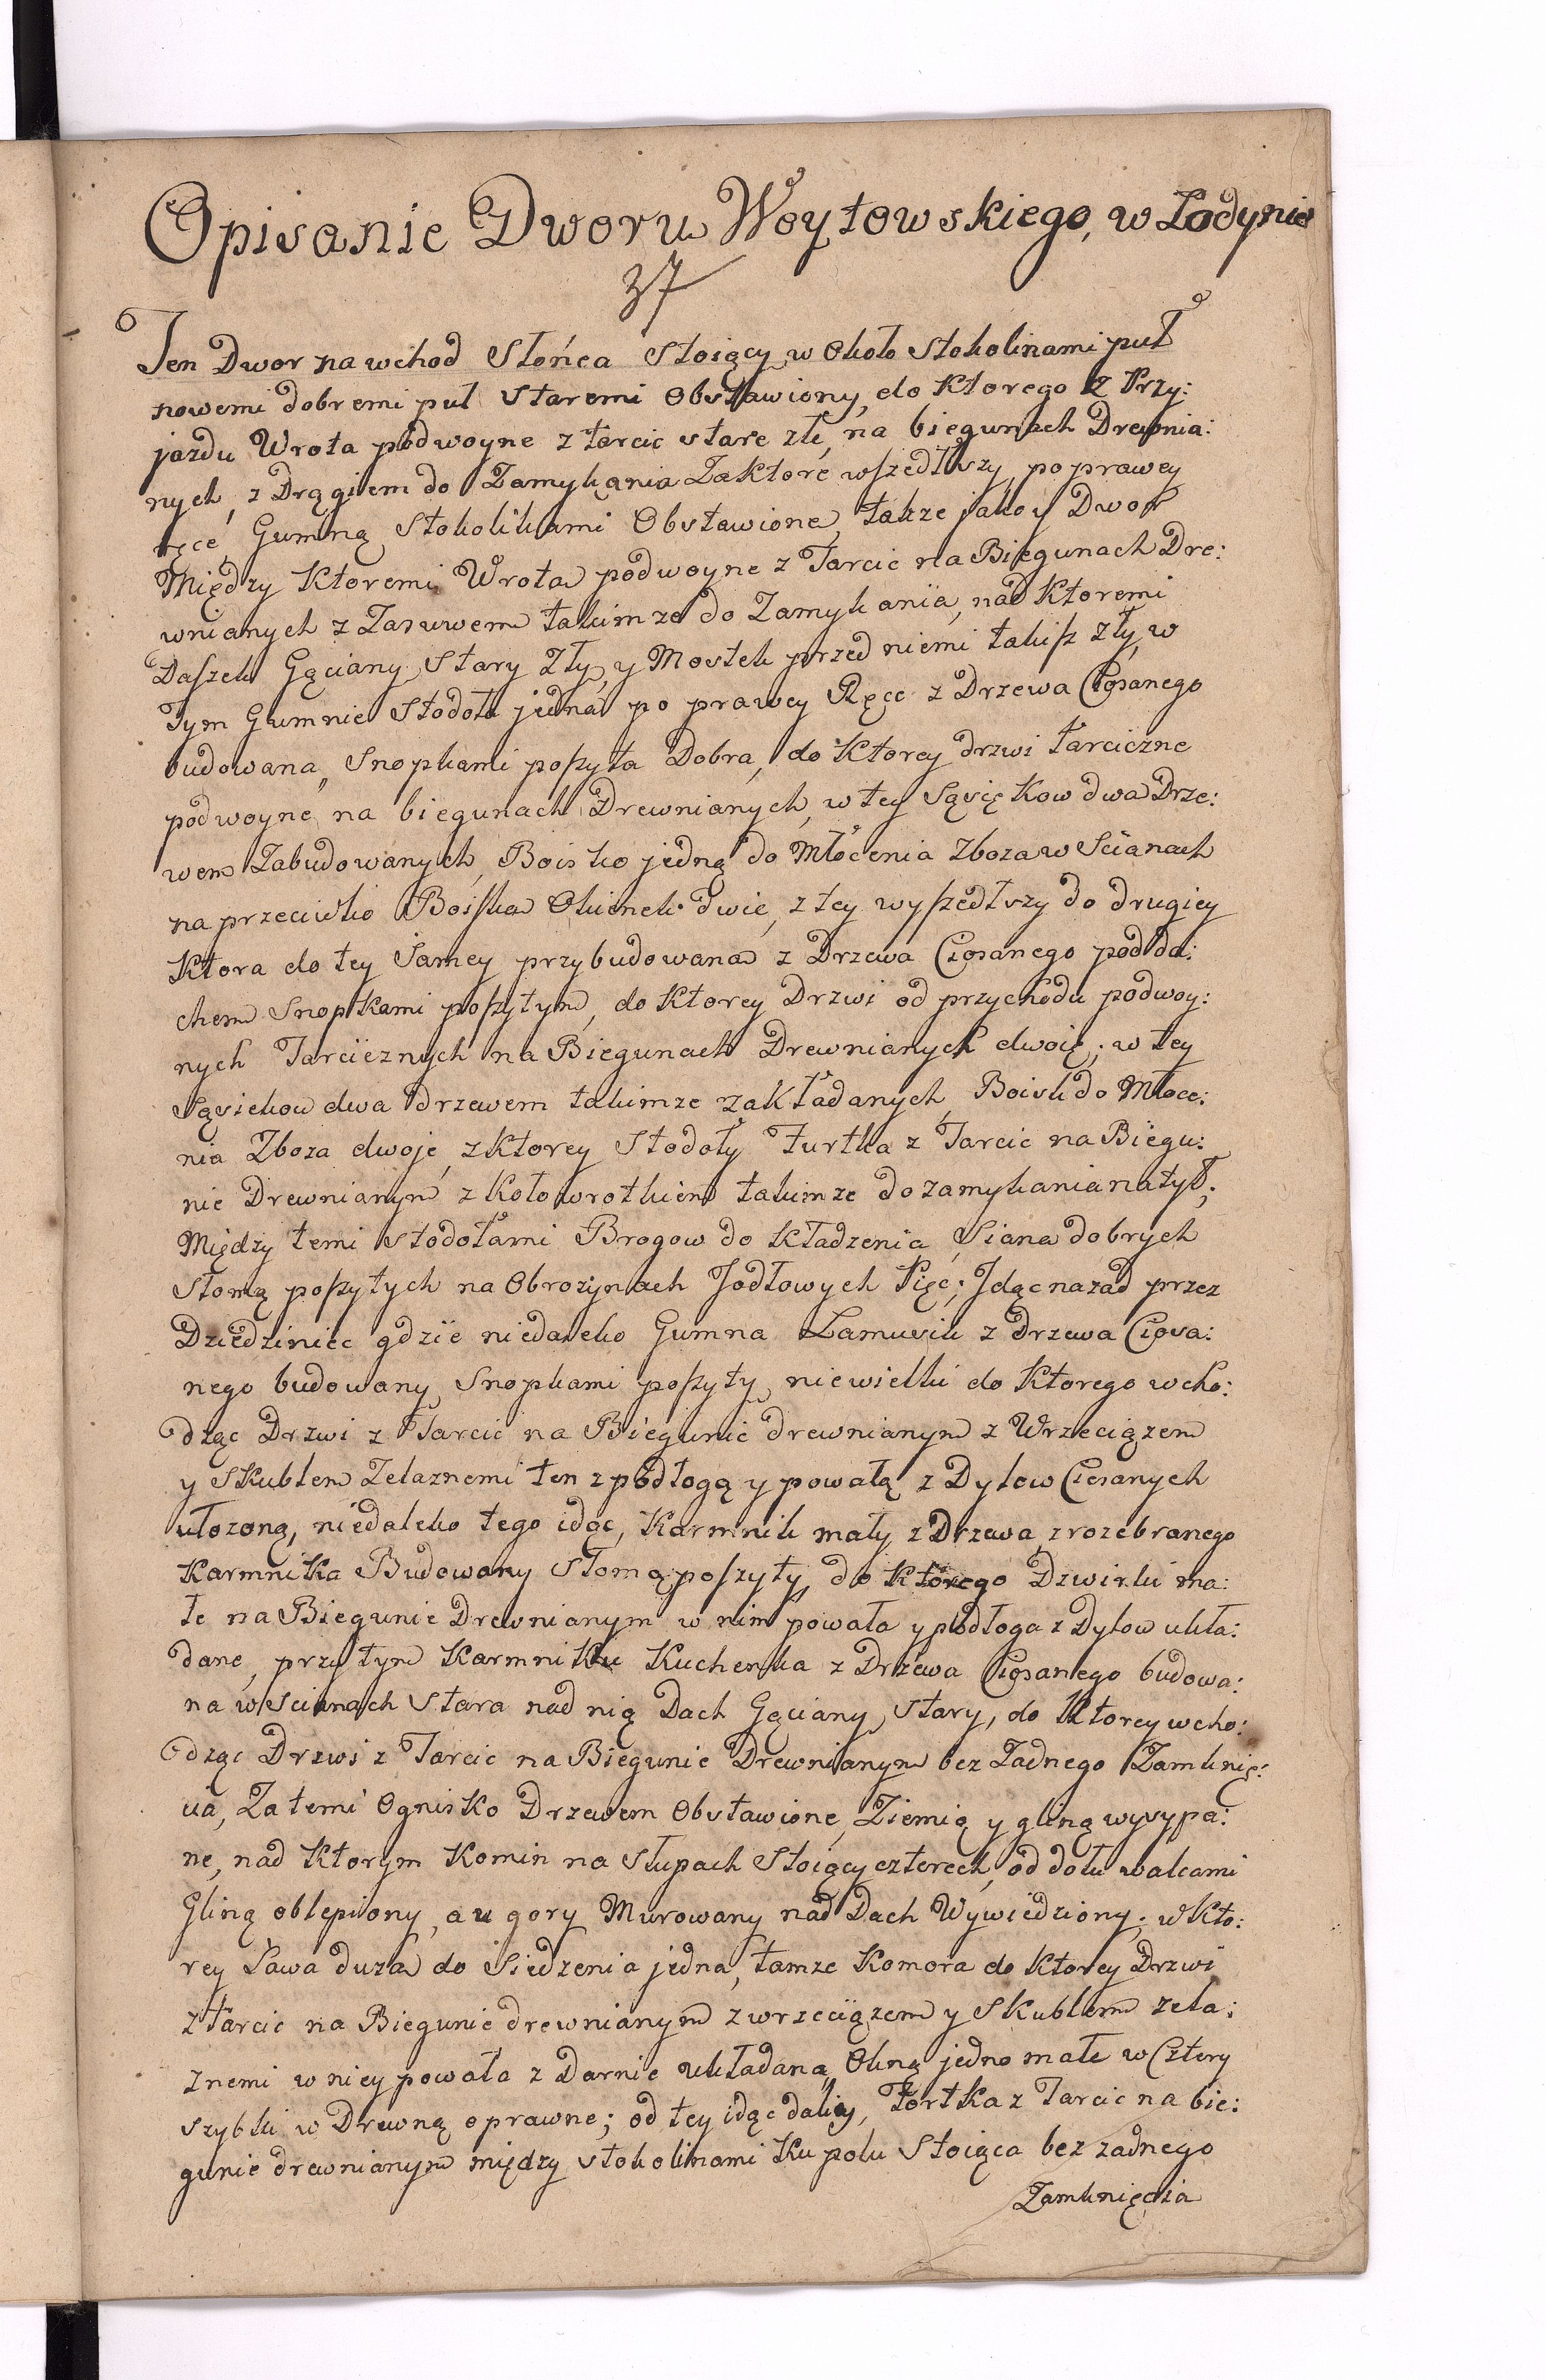 Opisanie Dworu Woytowskiego, w Lodynie
37
Ten Dwor na wchod Słońca Stoiący w Około Stokolinami puł
nowemi dobremi puł Staremi Obstawiony, do Ktorego z Przy:
jazdu Wrota podwoyne z tarcic stare złe, na biegunach Drewnia:
nych, z Drągiem do Zamykania Zaktore wszedłszy, po prawey
ręce, Gumną Stokolikami Obstawione, takze jako y Dwor
Między Ktoremi Wrota podwoyne z Tarcic na Biegunach Dre:
wnianych z Zasuwem takimze do Zamykania, nad Ktoremi
Daszek Gąciany Stary Zły, y Mostek przed niemi takisz zły, w
Tym Gumnie Stodoła jedna po prawey Ręce z Drzewa Ciosanego
budowana, Snopkami poszyta Dobra, do Ktorey drzwi tarciczne
podwoyne, na biegunach Drewnianych, w tey Sąsię Kow dwa Drze:
wem Zabudowanych, Boisko jedną do Młocenia Zboza w Scianach
na przeciwko Boiska Okienek dwie, z tey wyszedłszy do drugiey
Ktora do tey Samey przybudowana z Drzewa Ciosanego pod da:
chem Snopkami poszytym, do Ktorey Drzwi od przychodu podwoy:
nych Tarcicznych na Biegunach Drewnianych dwoie, w tey
Sąsiekow dwa drzewem takimze zakładanych, Boisk do Młoce:
nia Zboza dwoje, z ktorey Stodoły Furtka z Tarcic na Biegu:
nie Drewnianym z Kołowrotkiem takimze do zamykania na tył;
Między temi Stodołami Brogow do Kładzenia Siana dobrych
Słomą poszytych na Obrozynach Jodłowych Pięć; Jdąc nazad przez
Dziedziniec gdzie niedaleko Gumna Lamusik z Drzewa Ciosa:
nego budowany, Snopkami poszyty, niewielki do Ktorego wcho:
dząc Drzwi z Tarcic na Biegunie drewnianym z Wrzeciązem
y Skublem Zelaznemi ten z podłogą y powałą z Dylow Ciesanych
ułozoną, niedaleko tego idąc, Karmnik mały z Drzewa z rozebranego
Karmnika Budowany Słomą poszyty, do Ktorego Dzwirki ma:
łe na Biegunie Drewnianym w nim powała y podłoga z Dylow ukła:
dane, przy tym Karmniku Kuchenka z Drzewa Ciosanego budowa:
na w Scianach Stara nad nią Dach Gąciany Stary, do Ktorey wcho:
dząc Drzwi z Tarcic na Biegunie Drewnianym bez Zadnego Zamknię:
cia, Za temi Ognisko Drzewem Obstawione, Ziemią y gliną wysypa:
ne, nad Ktorym Komin na Słupach Stoiący czterech, od dołu walcami
Gliną oblepiony, a u gory Murowany nad Dach Wywiedziony; w Kto:
rey Ława duza do Siedzenia jedna, tamze Komora do Ktorey Drzwi
z tarcic na Biegunie drewnianym z wrzeciązem y Skublem zela:
znemi w niey powała z Darnie układana, Okną jedno małe w Cztery
szybki w Drewną oprawne; od tey idąc daliey, Fortka z Tarcic na bie:
gunie drewnianym między stokolinami Ku polu Stoiąca bez zadnego
Zamknięcia